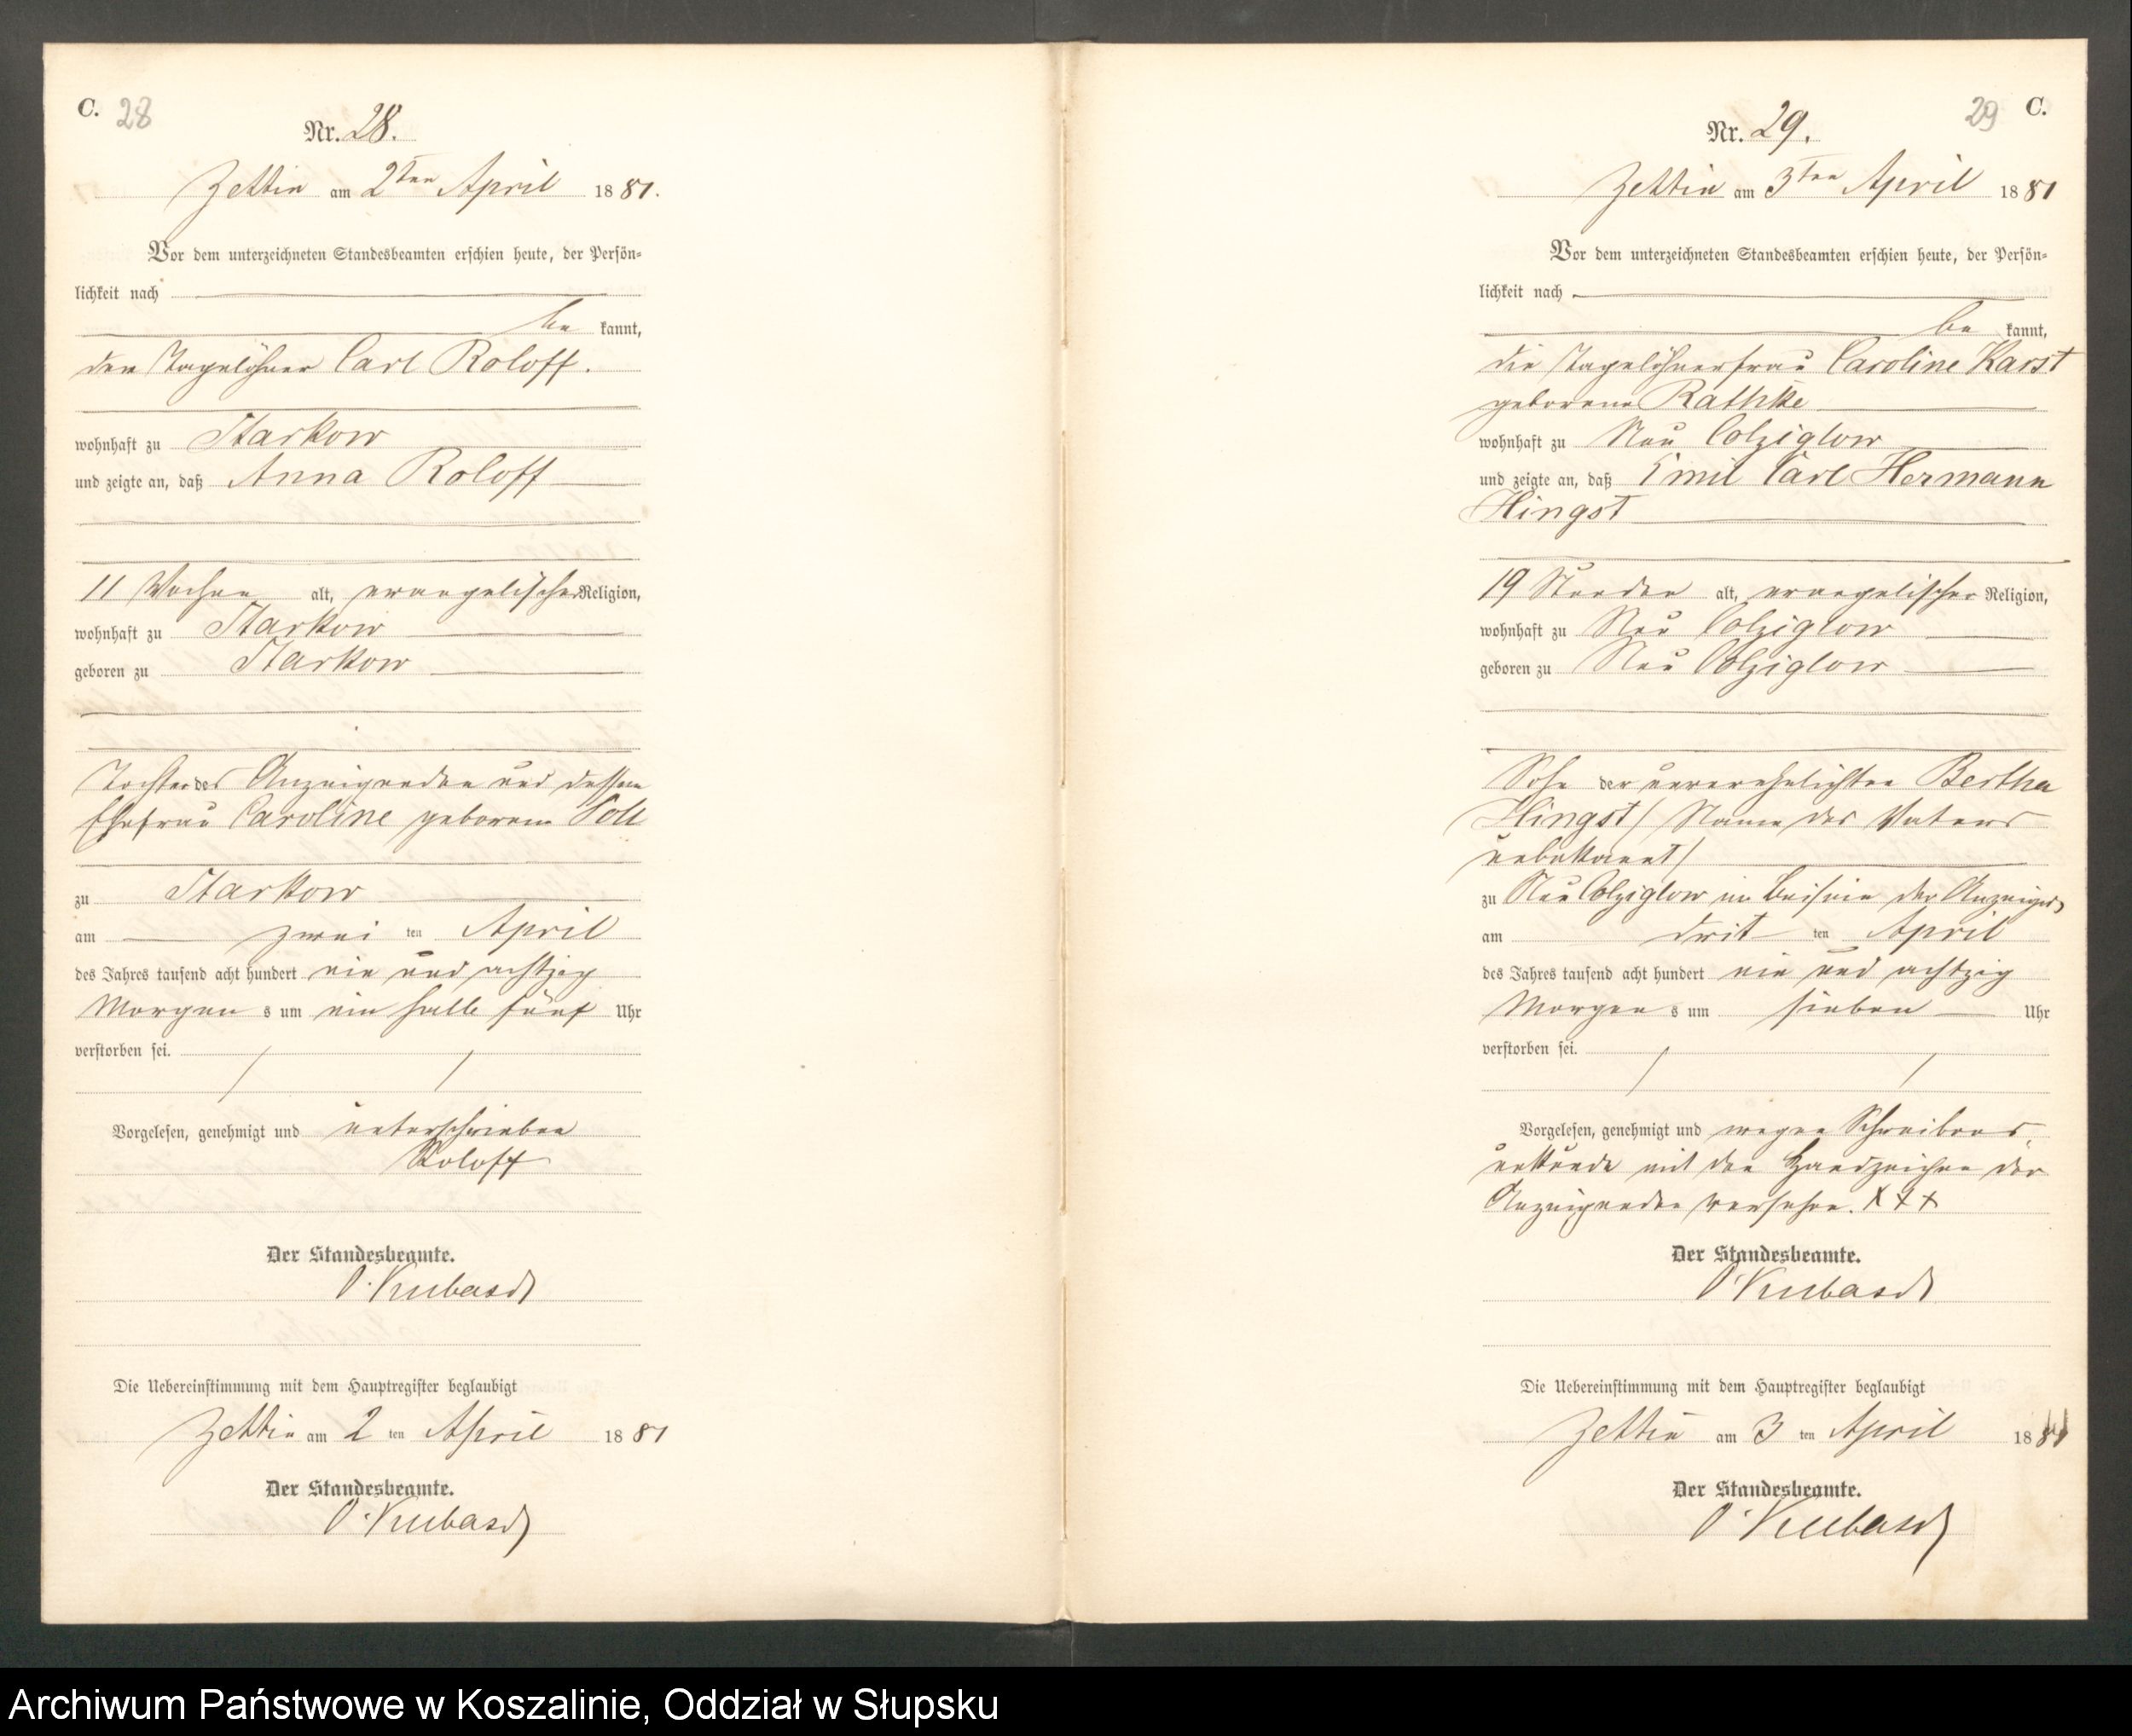 C. 28
Nr. 28.
Zettin am 2ten April 1881.
Vor dem unterzeichneten Standesbeamten erschien heute, der Persön-
lichkeit nach
be kannt,
den Tagelöhner Carl Roloff.
wohnhaft zu Starkow
und zeigte an, daß Anna Roloff
11 Wochen alt, evangelischer Religion,
wohnhaft zu Starkow
geboren zu Starkow
Tochter des Anzeigenden und dessen
Ehefrau Caroline geborene Voll
zu Starkow
am zwei ten April
des Jahres tausend acht hundert ein und achtzig
Morgen s um ein halb fünf Uhr
verstorben sei.
Vorgelesen, genehmigt und unterschrieben
Roloff
Der Standesbeamte.
O. Kubasch
Die Uebereinstimmung mit dem Hauptregister beglaubigt
Zettin am 2 ten April 1881
Der Standesbeamte.
O. Kubasch
29 C.
Nr. 29.
Zettin am 3ten April 1881
Vor dem unterzeichneten Standesbeamten erschien heute, der Persön-
lichkeit nach
be kannt,
die Tagelöhnerfrau Caroline Karst
geborene Rathke
wohnhaft zu Neu Colziglow
und zeigte an, daß Emil Carl Hermann
Hingst
19 Stunden alt, evangelischer Religion,
wohnhaft zu Neu Colziglow
geboren zu Neu Colziglow
Sohn der unverehelichten Bertha
Hingst / Name des Vaters
unbekannt /
zu Neu Colziglow im Beisein der Anzeigd.
am drit ten April
des Jahres tausend acht hundert ein und achtzig
Morgen s um sieben Uhr
verstorben sei.
Vorgelesen, genehmigt und wegen Schreibens
unkunde mit den Handzeichen der
Anzeigenden versehen. X X X
Der Standesbeamte.
O. Kubasch
Die Uebereinstimmung mit dem Hauptregister beglaubigt
Zettin am 3 ten April 1881
Der Standesbeamte.
O. Kubasch
Archiwum Państwowe w Koszalinie, Oddział w Słupsku